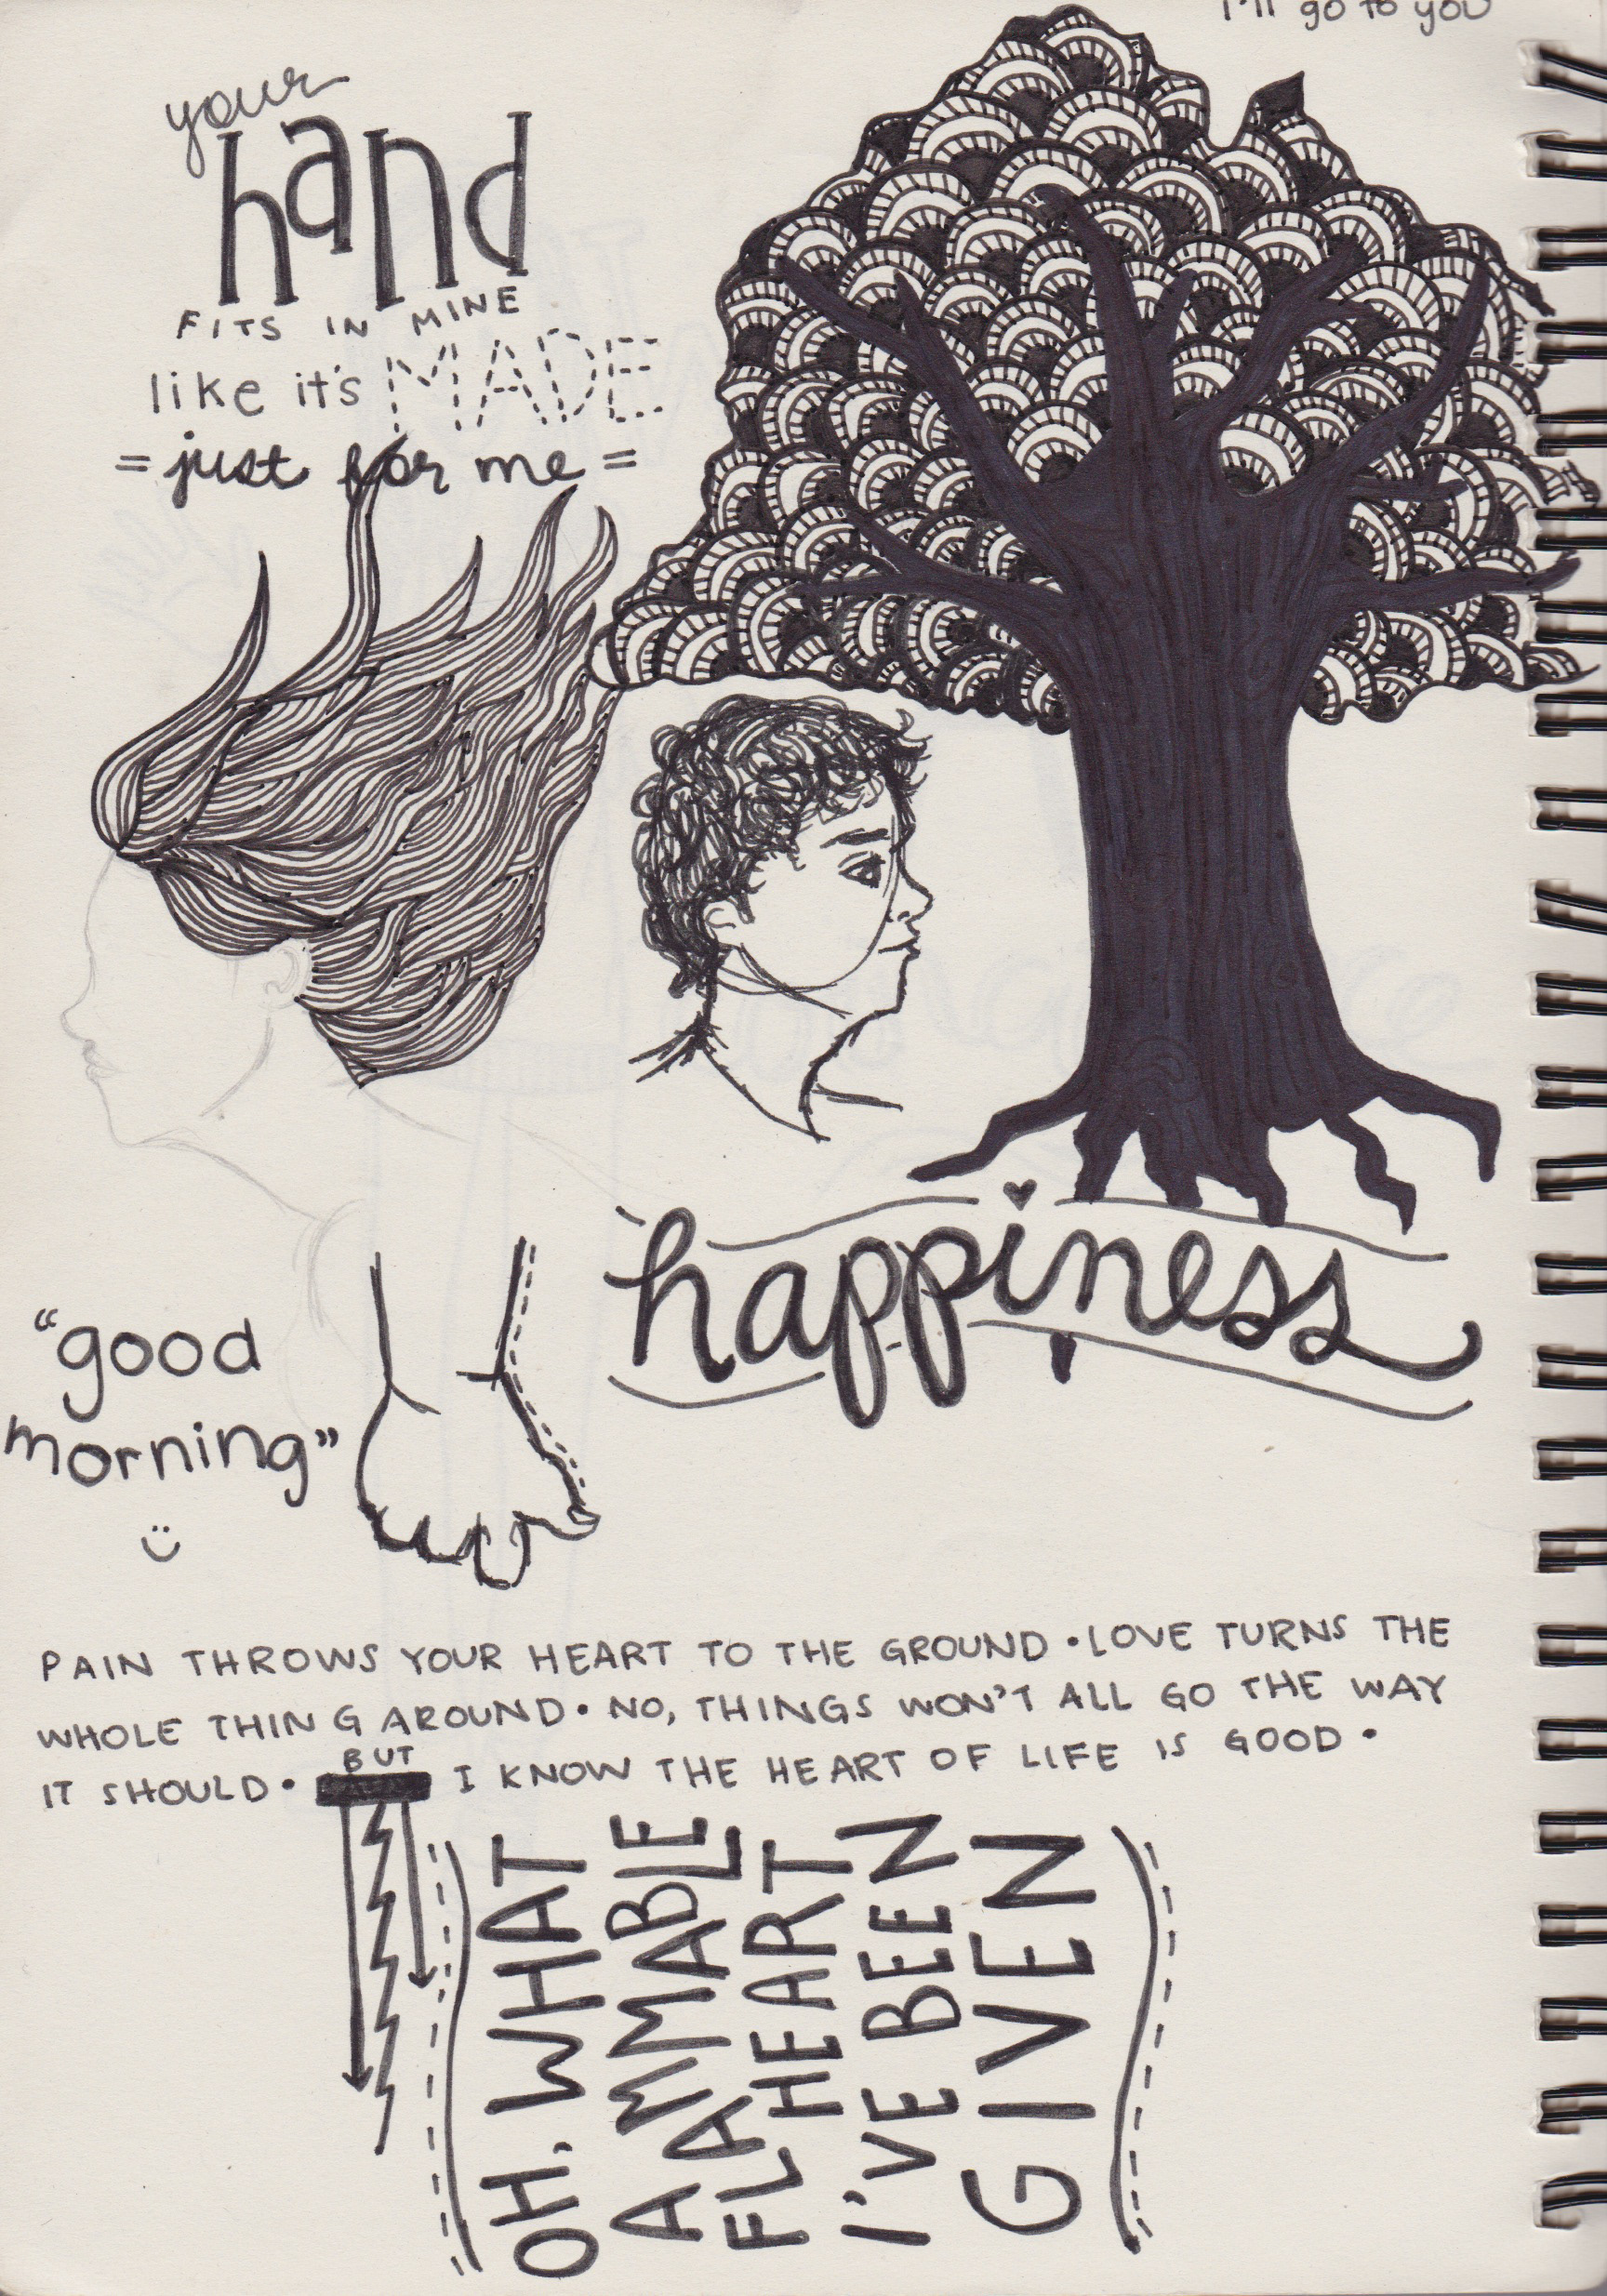 I'll go to you
your
hand
FITS IN MINE
like it's MADE
= just for me =
happiness
"good
morning"
PAIN THROWS YOUR HEART TO THE GROUND • LOVE TURNS THE
WHOLE THING AROUND • NO, THINGS WON'T ALL GO THE WAY
IT SHOULD • BUT I KNOW THE HEART OF LIFE IS GOOD •
OH, WHAT
A FLAMMABLE
HEART
I'VE BEEN
GIVEN